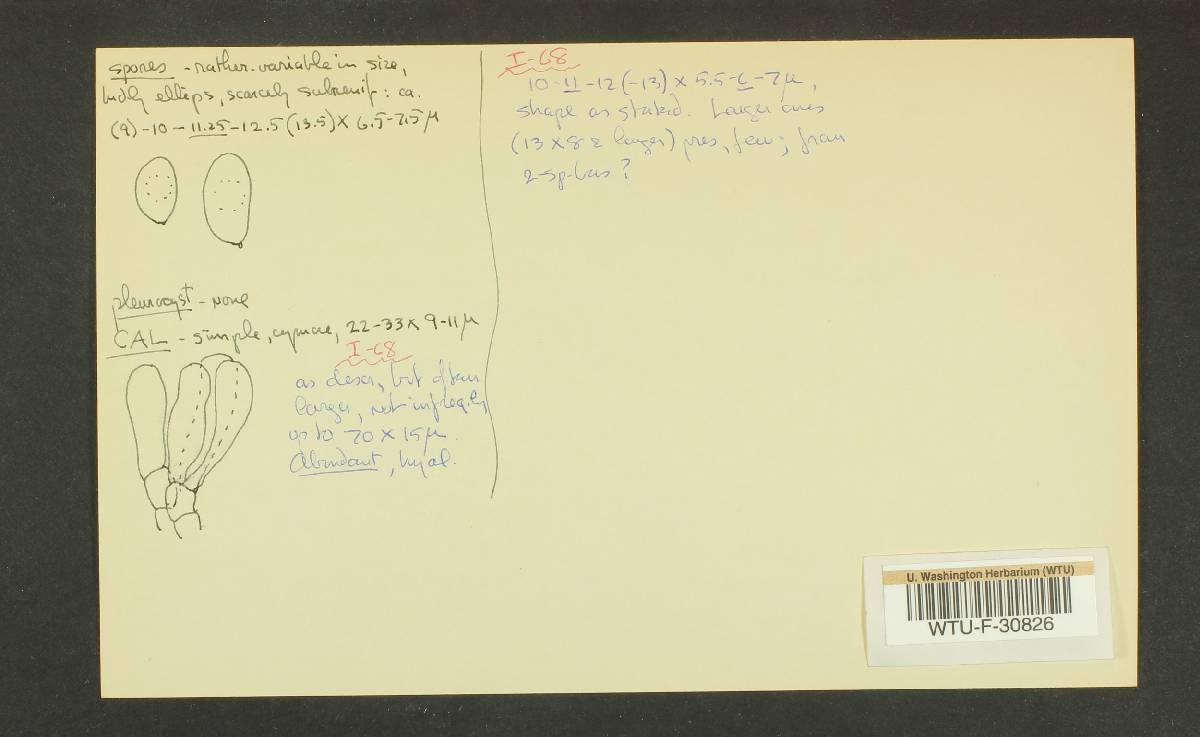 spores - rather variable in size,
brdly ellips, scarcely subrenif: ca.
(9)-10-11.25-12.5(13.5)× 6.5-7.5 µ
pleurocyst - none
CAL - simple, 22-33 × 9-11 µ
I-68
as descr, but often
larger, not infreq.ly
up to 70 × 15 µ.
Abundant, hyal.
I-68
10-11-12(-13) × 5.5-6-7 µ,
shape as stated. Larger ones
(13 × 8 & larger) pres, few; from
2-sp. bas.?
U. Washington Herbarium (WTU)
WTU-F-30826